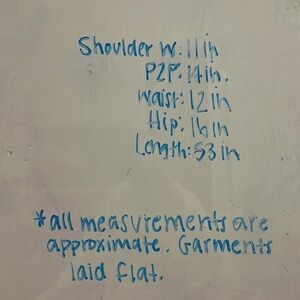 Shoulder W: 11in
P2P: 14in.
Waist: 12in
Hip: 16in
Length: 53in
*all measurements are
approximate. Garments
laid flat.